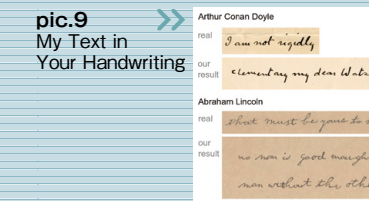 pic.9
My Text in
Your Handwriting
Arthur Conan Doyle
real
I am not rigidly
our
result
elementary my dear Wats
Abraham Lincoln
real
that must be yours to
our
result
no man is good enough
man without the othe